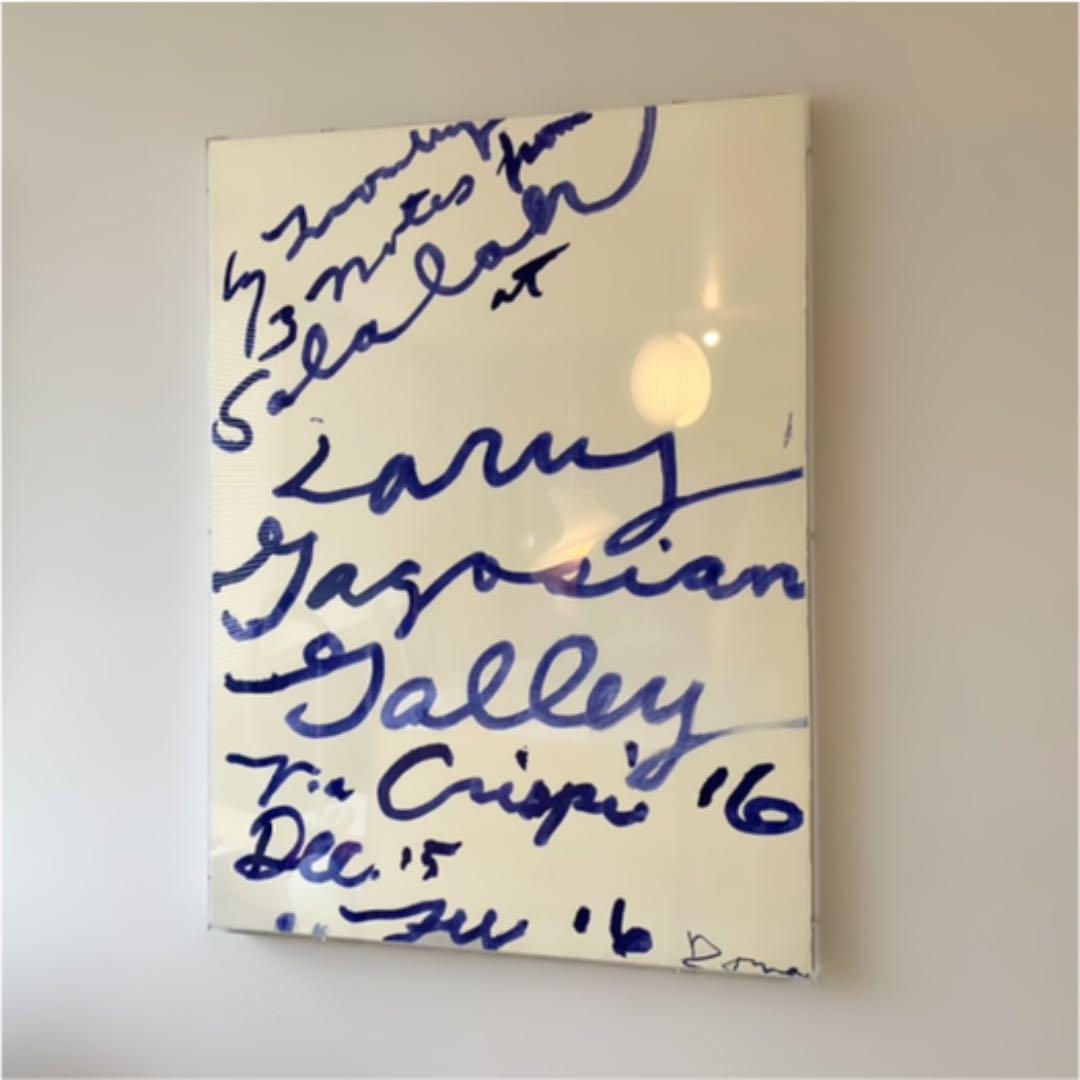 Cy Twombly
13 notes from
Salalah
at
Larry
Gagosian
Galley
Via Crispi '16
Dec. '15
Feb '16
Roma